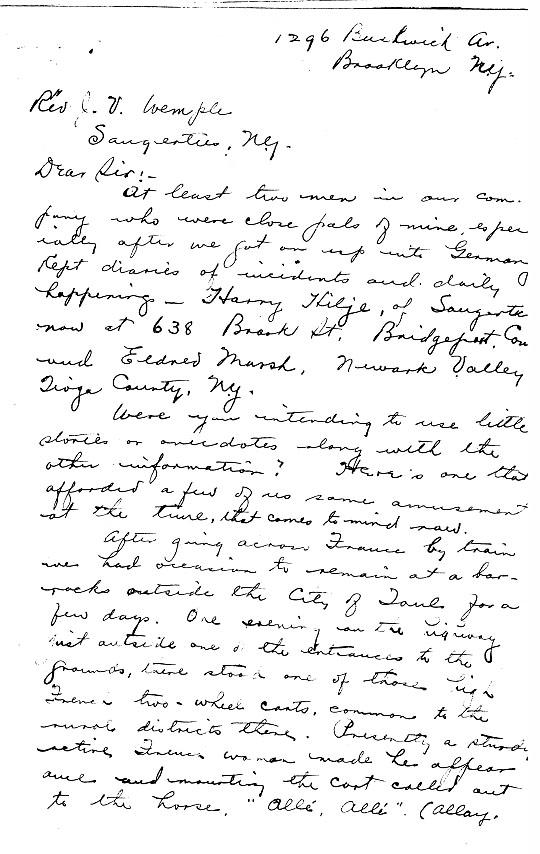 1296 Bushwick Av.
Brooklyn N.Y.
Rev J. V. Wemple
Saugerties, N.Y.
Dear Sir:-
At least two men in our com-
pany who were close pals of mine, espec
ially after we got on up into Germany
kept diaries of incidents and daily
happenings - Harry Hilje, of Saugerties
now at 638 Brook St. Bridgeport, Con
and Eldred Marsh, Newark Valley
Tioga County, N.Y.
Were you intending to use little
stories or anecdotes along with the
other information? Here's one that
afforded a few of us some amusement
at the time, that comes to mind now.
After going across France by train
we had occasion to remain at a bar-
racks outside the City of Toul for a
few days. One evening on the
just outside one of the entrances to the
grounds, there stood one of those high
French two-wheel carts, common to the
rural districts there. Presently a sturdy
active French woman made her appear
ance and mounting the cart called out
to the horse, "Allé, Allé". (Allay.